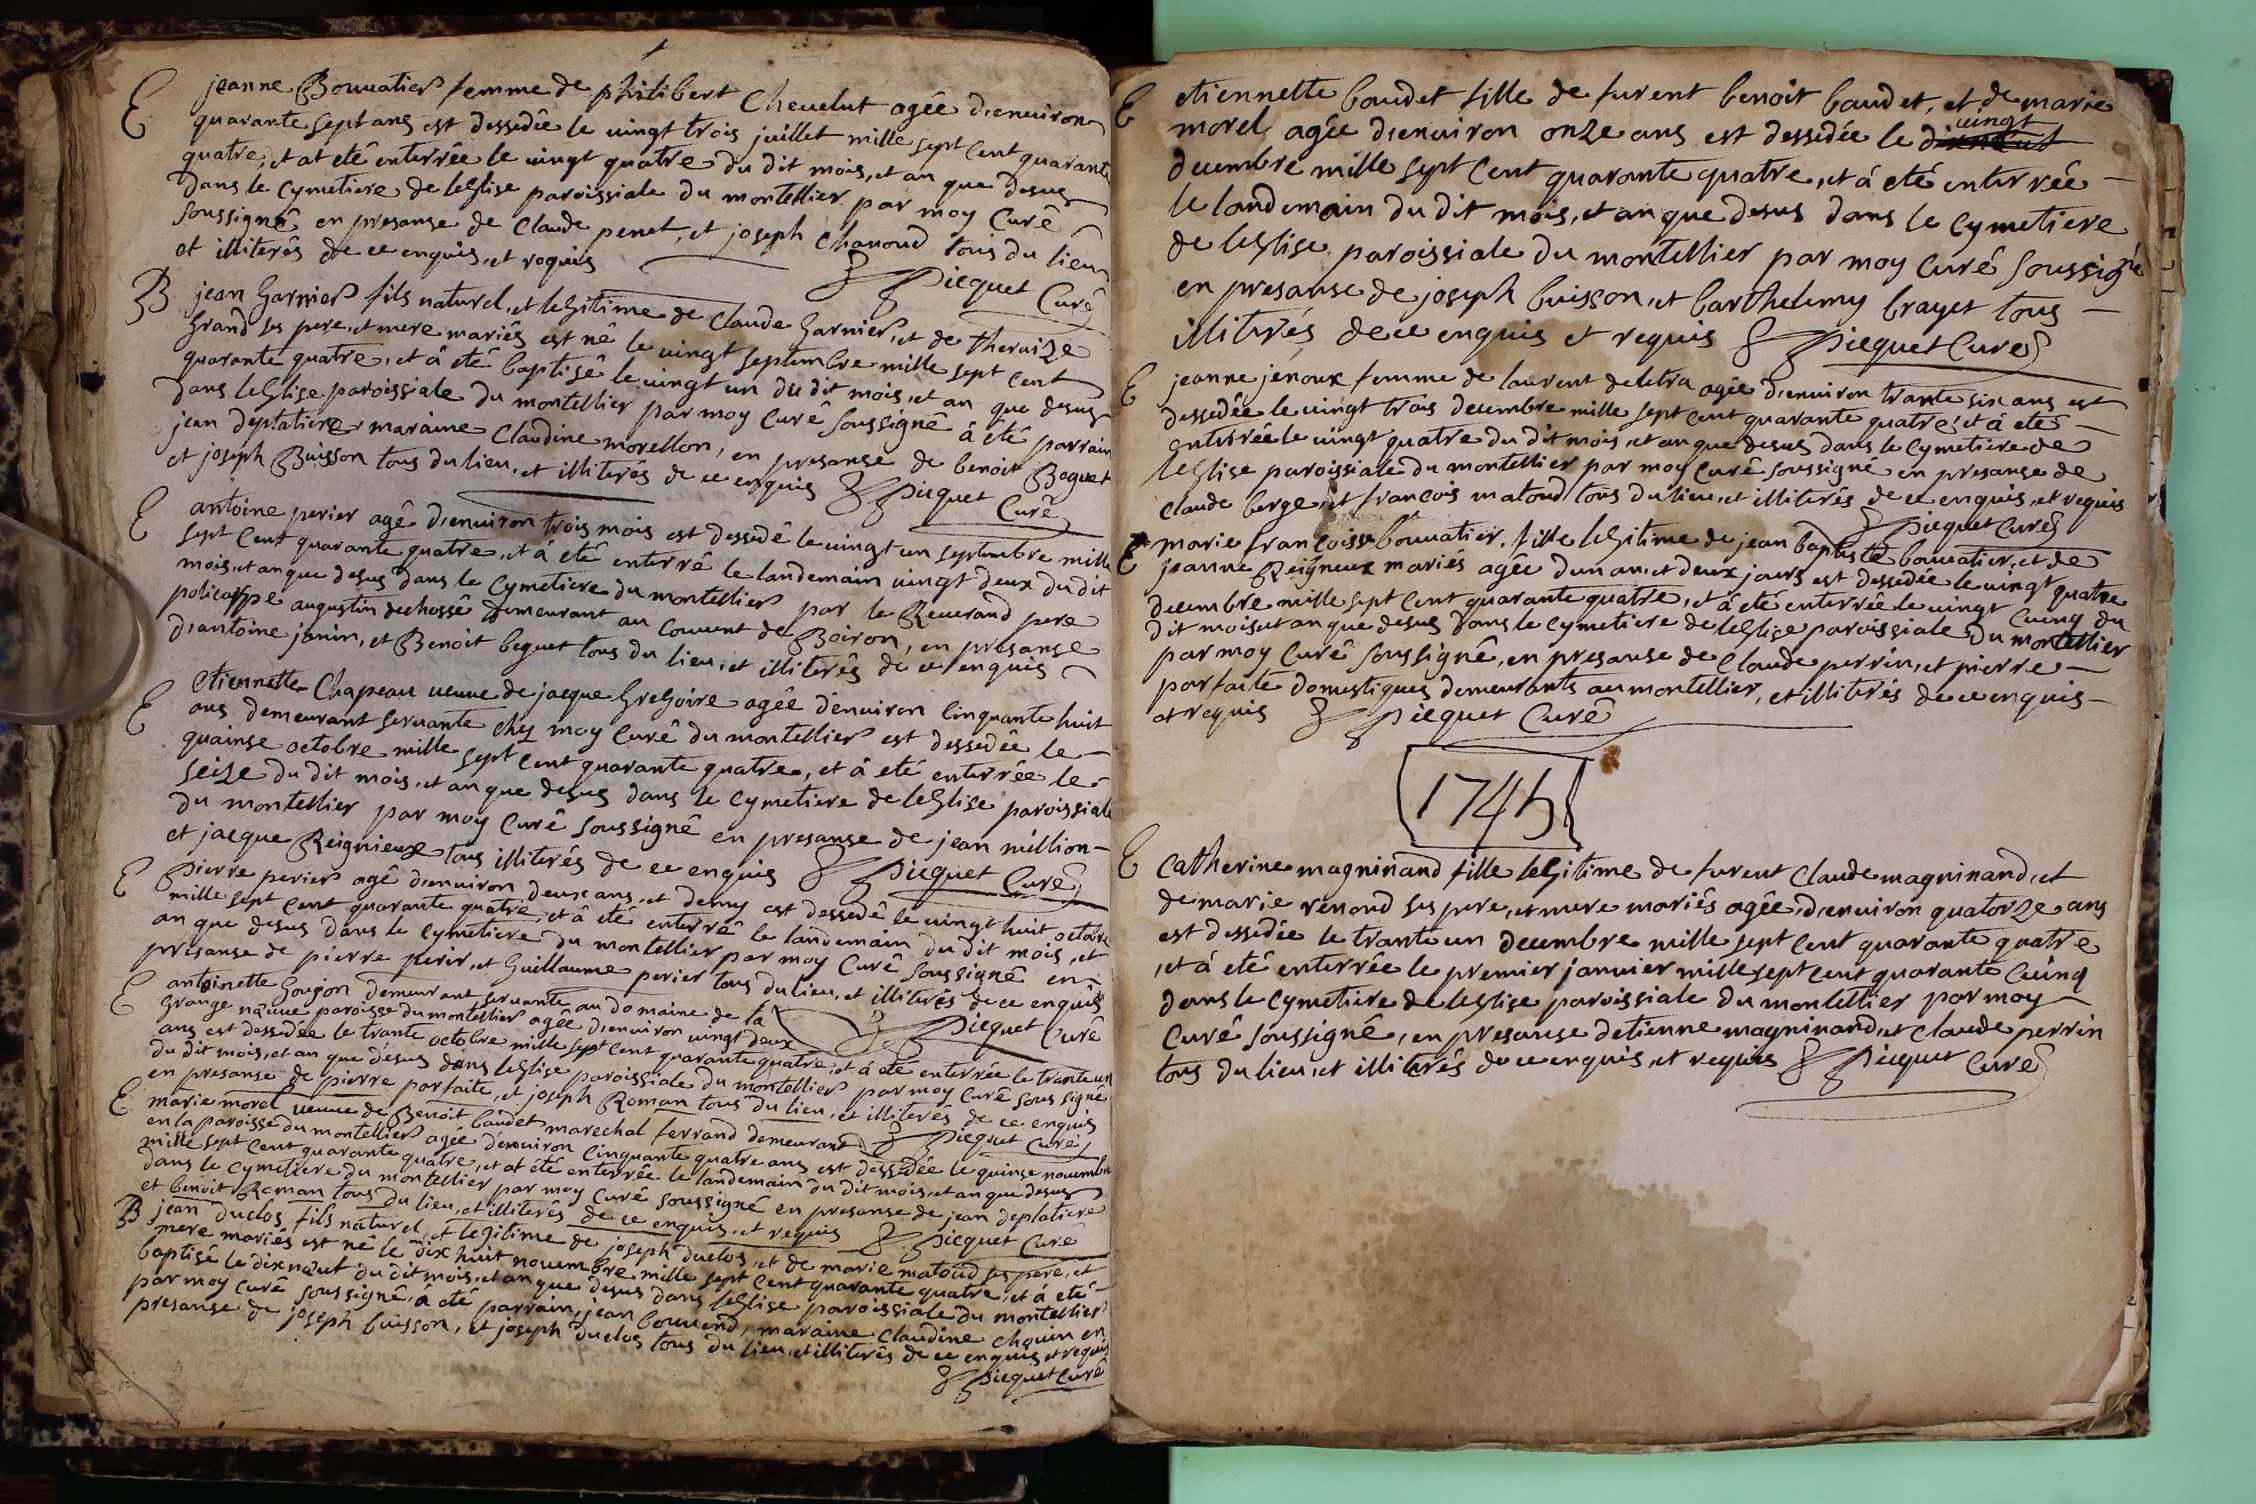 E jeanne Bouuatier femme de philibert Cheuelut agée d'enuiron
quarante sept ans est dessedée le uingt trois juillet mille sept cent quarante
quatre, et at eté enterrée le uingt quatre du dit mois, et an que desus
dans le Cymetiere de leglise paroissiale du montellier par moy Curé
soussigné en presanse de Claude penet, et joseph Chanoud tous du lieu
et illiterés de ce enquis, et requis Picquet Curé
B jean Garnier fils naturel, et legitime de Claude Garnier, et de theruize
Grand ses pere, et mere mariés est né le uingt septembre mille sept cent
quarante quatre, et á eté baptisé le uingt un du dit mois, et an que desus
dans leglise paroissiale du montellier par moy Curé soussigné á eté parrain
jean deplatiere maraine Claudine morellon, en presanse de benoit Beguet
et joseph Buisson tous du lieu, et illiterés de ce enquis Picquet Curé
E antoine perier agé d'enuiron trois mois est dessedé le uingt un septembre mille
sept Cent quarante quatre, et á eté enterré le landemain uingt deux du dit
mois, et an que desus dans le Cymetiere du montellier par le Reuerand pere
policarppe augustin dechossé demeurant au Couuent de Boiron, en presanse
d'antoine janin, et Benoit beguet tous du lieu, et illiterés de ce enquis
E etiennette Chapeau ueuue de jacque Gregoire agée d'enuiron Cinquante huit
ans demeurant seruante chez moy Curé du montellier est dessedée le
quainse octobre mille sept cent quarante quatre, et á eté enterrée le
seize du dit mois, et an que desus dans le Cymetiere de leglise paroissiale
du montellier par moy Curé soussigné en presanse de jean million
et jacque Reignieux tous illiterés de ce enquis Picquet Curé
E Pierre perier agé d'enuiron deux ans, et demy est dessedé le uingt huit octobre
mille sept cent quarante quatre, et á eté enterré le landemain du dit mois, et
an que desus dans le Cymetiere du montellier par moy Curé soussigné en
presanse de pierre perir, et Guillaume perier tous du lieu, et illiterés de ce enquis
Picquet Curé
E antoinette Goujon demeurant seruante au domaine de la
Grange nauue paroisse du montellier agée d'enuiron uingt deux
ans est dessedée le trante octobre mille sept cent quarante quatre, et á eté enterrée le trante un
du dit mois, et an que desus dans leglise paroissiale du montellier par moy Curé soussigné
en presanse de pierre parfaite, et joseph Roman tous du lieu, et illiterés de ce enquis
Picquet Curé
E marie morel ueuue de Benoit baudet marechal ferrand demeurant
en la paroisse du montellier agée d'enuiron Cinquante quatre ans est dessedée le quinse nouembre
mille sept cent quarante quatre, et at eté enterrée le landemain du dit mois, et an que desus
dans le Cymetiere du montellier par moy Curé soussigné en presanse de jean deplatiere
et benoit Roman tous du lieu, et illiterés de ce enquis, et requis Picquet Curé
B jean duclos fils naturel, et legitime de joseph duclos, et de marie matoud ses pere, et
mere mariés est né le dix huit nouembre mille sept cent quarante quatre, et á eté
baptisé le dixneut du dit mois, et an que desus dans leglise paroissiale du montellier
par moy Curé soussigné á eté parrain, jean bouuend, maraine Claudine Chouin en
presanse de joseph buisson, et joseph duclos tous du lieu, et illiterés de ce enquis et requis
Picquet Curé
E etiennette baudet fille de furent benoit baudet, et de marie
uingt
morel agée d'enuiron onze ans est dessedée le dixneut
decembre mille sept cent quarante quatre, et á eté enterrée
le landemain du dit mois, et an que desus dans le Cymetiere
de leglise paroissiale du montellier par moy Curé soussigné
en presanse de joseph buisson, et barthelemy brayet tous
illiterés de ce enquis et requis Picquet Curé
E jeanne jenoux femme de laurent deletra agée d'enuiron trante six ans est
dessedée le uingt trois decembre mille sept cent quarante quatre, et á eté
enterrée le uingt quatre du dit mois, et an que desus dans le Cymetiere de
leglise paroissiale du montellier par moy Curé soussigné en presanse de
Claude berge, et francois matoud tous du lieu, et illiterés de ce enquis, et requis
Picquet Curé
E marie francoisse bouuatier, fille legitime de jean baptiste bouuatier, et de
jeanne Reigneux mariés agée d'un an, et deux jours est dessedée le uingt quatre
decembre mille sept cent quarante quatre, et á eté enterrée le uingt Cuinq du
dit mois et an que desus dans le Cymetiere de leglise paroissiale du montellier
par moy Curé soussigné, en presanse de Claude perrin, et pierre
parfaite domestiques demeurants au montellier, et illiterés de ce enquis
et requis Picquet Curé
1745
E Catherine magninand fille legitime de furent Claude magninand, et
de marie renond ses pere, et mere mariés agée d'enuiron quatorze ans
est dessedée le trante un decembre mille sept cent quarante quatre
, et á eté enterrée le premier januier mille sept cent quarante Cuinq
dans le Cymetiere de leglise paroissiale du montellier par moy
Curé soussigné, en presanse d'etienne magninand, et Claude perrin
tous du lieu, et illiterés de ce enquis, et requis Picquet Curé